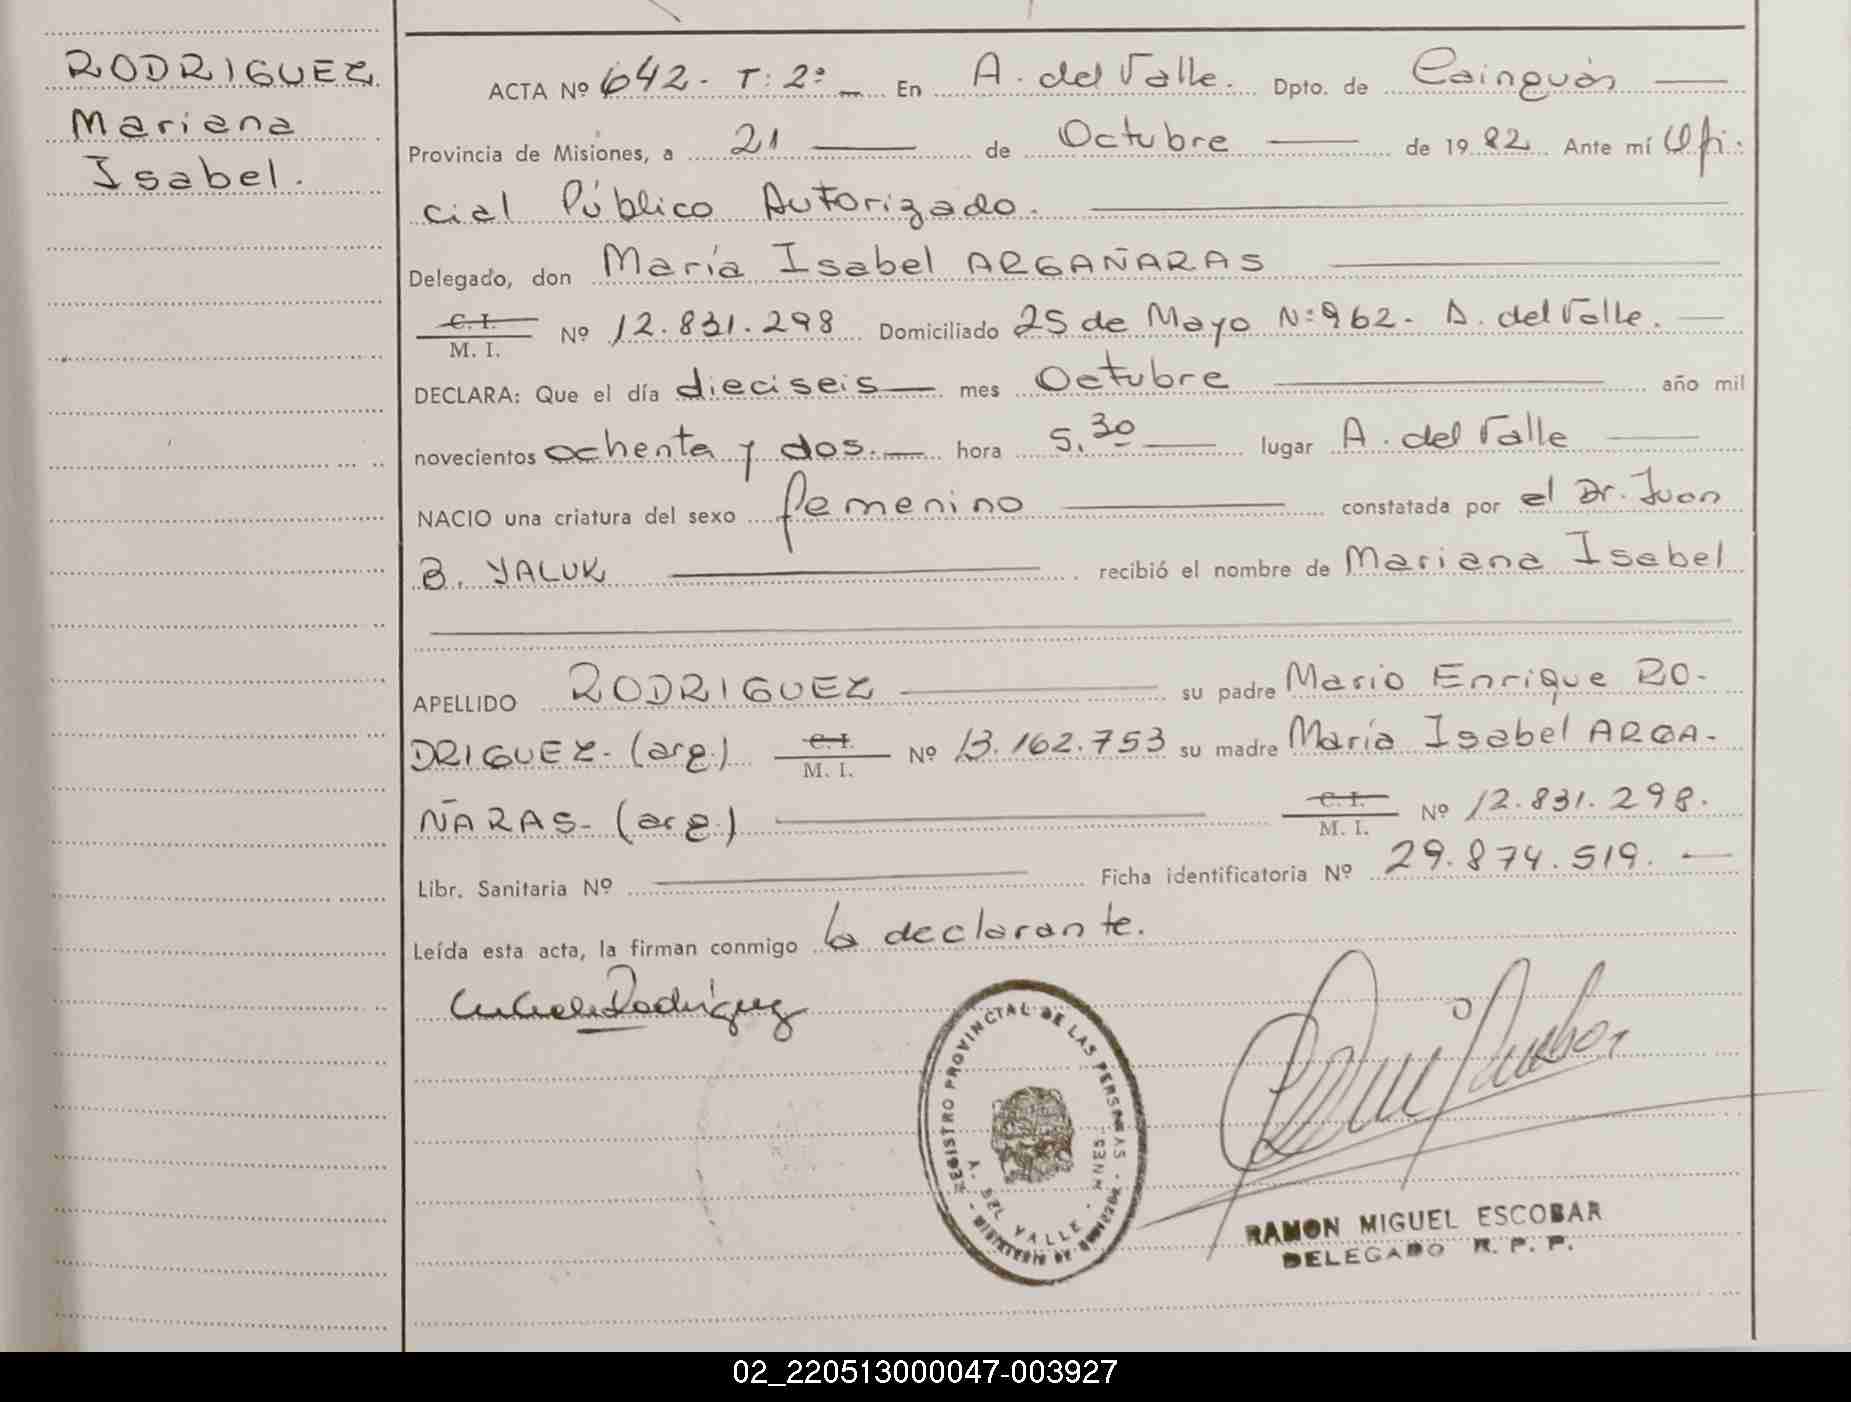 RODRIGUEZ
Mariana
Isabel.
ACTA Nº 642- T: 2º En A. del Valle. Dpto. de Cainguás
Provincia de Misiones, a 21 de Octubre de 1982 Ante mí Ofi-
cial Público Autorizado.
Delegado, don María Isabel ARGAÑARAS
C. I.
M. I. Nº 12.831.298 Domiciliado 25 de Mayo Nº 962- A. del Valle.
DECLARA: Que el día dieciseis mes Octubre año mil
novecientos ochenta y dos. hora 5,30 lugar A. del Valle
NACIO una criatura del sexo femenino constatada por el Dr. Juan
B. YALUK recibió el nombre de Mariana Isabel
APELLIDO RODRIGUEZ su padre Mario Enrique RO-
DRIGUEZ- (arg.) C. I. M. I. Nº 13.162.753 su madre María Isabel ARGA-
ÑARAS- (arg.) C. I. M. I. Nº 12.831.298.
Libr. Sanitaria Nº Ficha identificatoria Nº 29.874.519.
Leída esta acta, la firman conmigo la declarante.
Rodríguez
REGISTRO PROVINCIAL DE LAS PERSONAS
A. DEL VALLE - MNES.
MINISTERIO DE GOBIERNO
RAMON MIGUEL ESCOBAR
DELEGADO R. P. P.
02_220513000047-003927